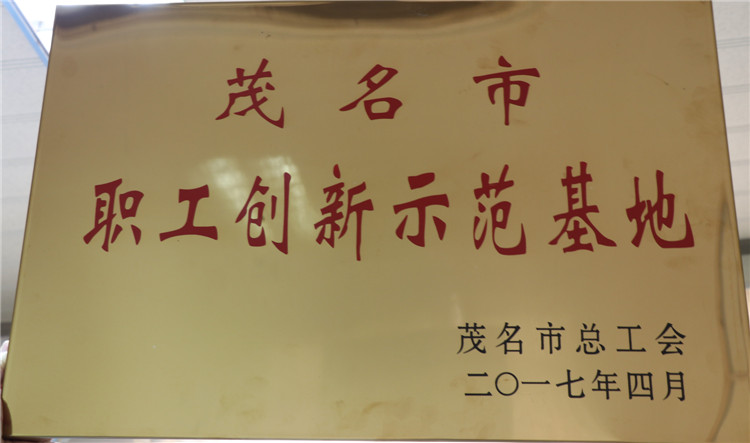 茂名市
职工创新示范基地
茂名市总工会
二〇一七年四月